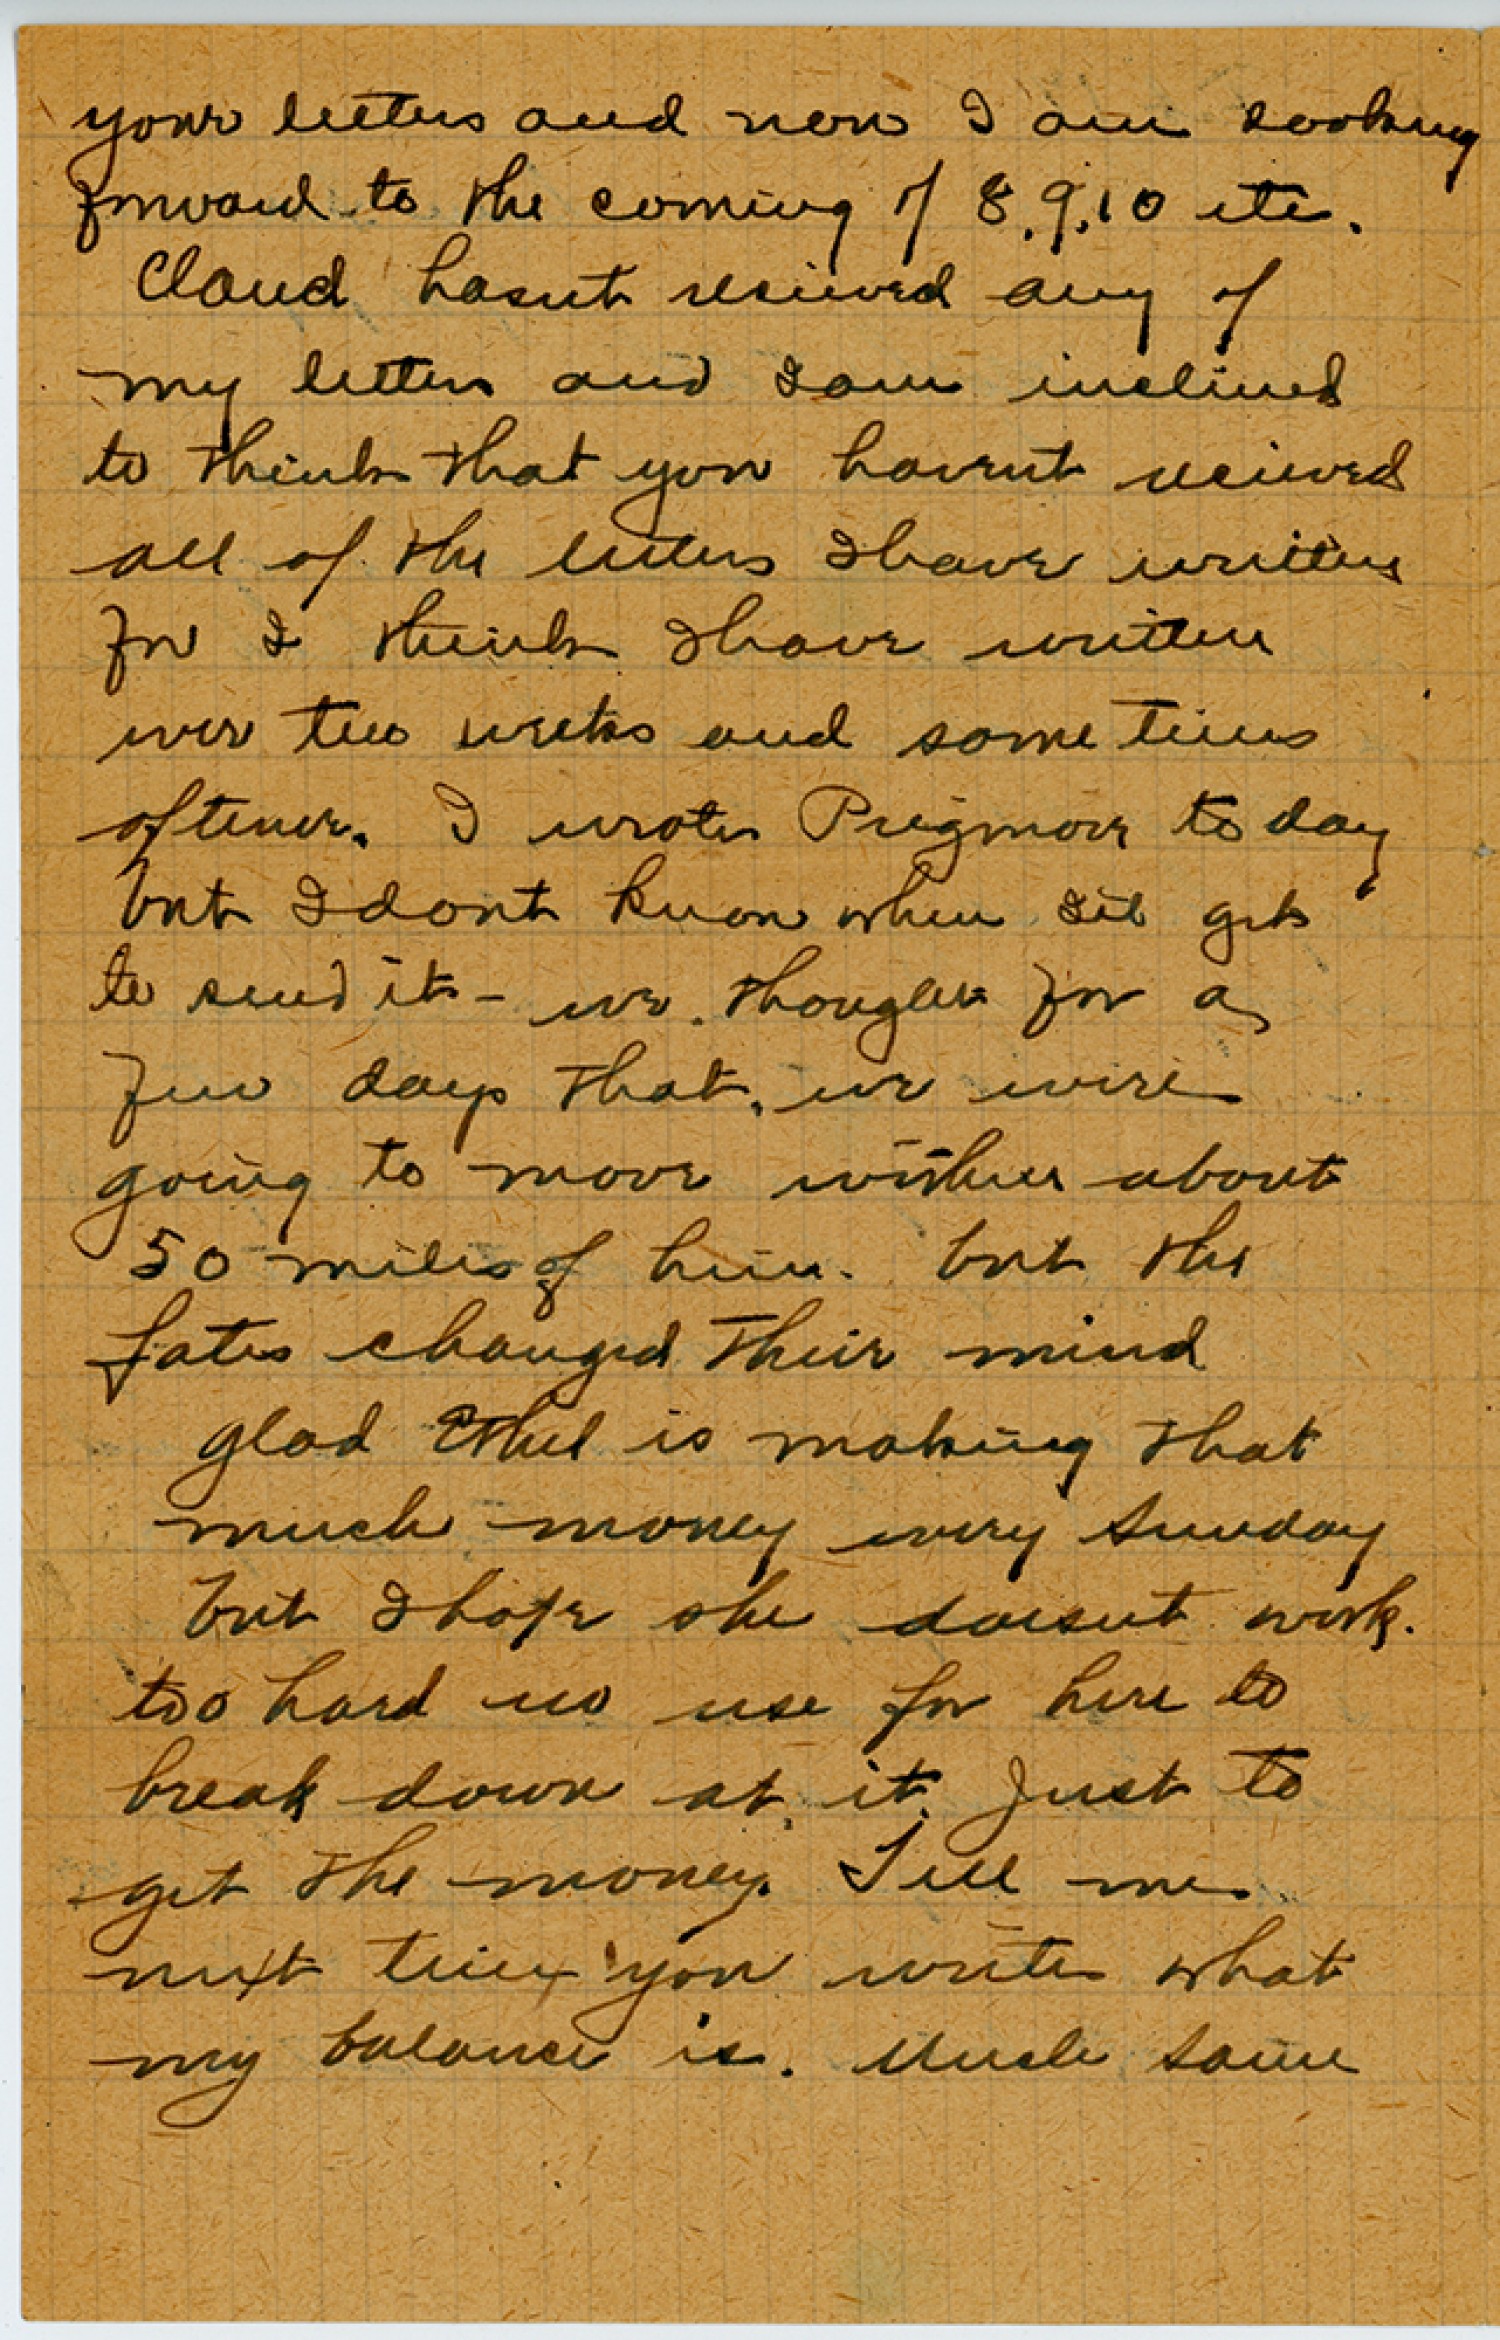 your letters and now I am looking
forward to the coming of 8, 9, 10 etc.
Claud hasnt recieved any of
my letters and I am inclined
to think that you havent recieved
all of the letters I have written
for I think I have written
ever two weeks and some times
oftener. I wrote Prigmore to day
but I dont know when I'll get
to send it - we thought for a
few days that we were
going to move within about
50 miles of him. but the
fates changed their mind
glad Ethel is making that
much money every Sunday
but I hope she doesnt work.
too hard no use for here to
break down at it Just to
get the money. Tell me
next time you write what
my balance is. Uncle Same